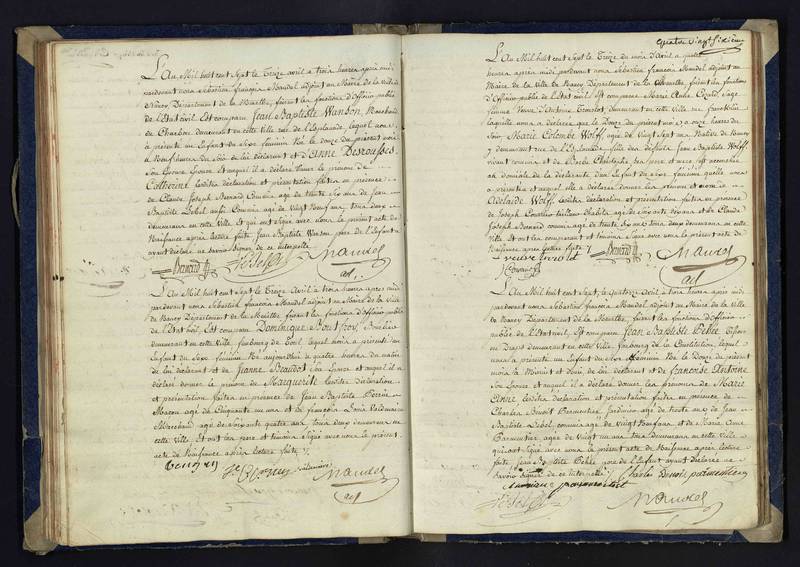 L'An Mil huit cent Sept le Treize avril a trois heures après midi
pardevant nous Sébastien françois Mandel adjoint au Maire de la Ville de
Nancy Département de la Meurthe, faisant les fonctions d'Officier public
de l'Etat civil, Est comparu Jean Baptiste Wanson,
de Charbon demeurant en cette ville rue de l'Esplanade, lequel nous
à présenté un Enfant du Sexe féminin Né le douze du présent mois
à neuf heures du Soir, de lui déclarant et d'Anne Desrousses,
Son Epouse et auquel il a déclaré donner le prénom de
Catherine lesdites déclaration et présentation faites en présence
de Claude Joseph Bernard Commis agé de trente Six ans de Jean
Baptiste Lebel aussi Commis agé de Vingt Neuf ans, tous deux
demeurans en cette Ville. Et ont Signé avec nous le présent acte de
Naissance après lecture faite, Jean Baptiste Wanson pere de l'Enfant
ayant déclaré ne Savoir Signer de ce Interpellé
Bernard
Mandel
adj
L'An Mil huit cent Sept, le Treize Avril à trois heures après midi
pardevant nous Sébastien françois Mandel adjoint au Maire de la Ville
de Nancy Département de la Meurthe, faisant les fonctions d'Officier public
de l'Etat Civil, Est comparu Dominique
demeurant en cette Ville, faubourg de lequel nous à présenté un
Enfant du Sexe féminin Né aujourd'hui à quatre heures du matin
de lui déclarant et de Jeanne Beaudot Son Epouse et auquel il a
déclaré donner le prénom de Marguerite lesdites Déclaration
et présentation faites en présence de Jean Baptiste
Maçon agé de Cinquante un ans et de françois Louis
Marchand agé de Soixante quatre ans tous deux demeurans en
cette Ville. Et ont les pere et témoins Signé avec nous le présent
acte de Naissance après lecture faite
Mandel
adj
quatre vingt Sixième
L'An Mil huit cent Sept le Treize du mois d'Avril a quatre
heures après midi pardevant nous Sébastien françois Mandel adjoint au
Maire de la Ville de Nancy Département de la Meurthe, faisant les fonctions
d'Officier public de l'Etat civil. Est comparue Marie Anne Sage
femme Veuve d'Antoine demeurant en cette Ville rue
laquelle nous a déclaré que le Douze du présent mois, à onze heures du
Soir, Marie Colombe Wolff, agée de Vingt Sept ans Native de Nancy
y demeurant rue de l'Esplanade fille des défunts Jean Baptiste Wolff
vivant commis et de Barbe Christophe Ses pere et mere Est accouchée
au domicile de la déclarante d'un Enfant du Sexe féminin quelle nous
a présenté et auquel elle a déclaré donner les prénoms et nom de
Adelaïde Wolff lesdites déclaration et présentation faites en présence
de Joseph tailleur d'habits agé de Soixante ans et de Claude
Joseph Bernard commis agé de trente Six ans, tous deux demeurans en cette
Ville. Et ont les comparant et témoins Signé avec nous le présent acte de
Naissance après lecture faite
Bernard
Mandel
adj
L'An Mil huit cent Sept, le quatorze Avril à trois heures après midi
pardevant nous Sébastien françois Mandel adjoint au Maire de la Ville
de Nancy Département de la Meurthe, faisant les fonctions d'Officier
public de l'Etat civil, Est comparu Jean Baptiste
en Draps demeurant en cette Ville, faubourg de la Constitution, lequel
nous a présenté un Enfant du Sexe féminin Né le Douze du présent
mois à Minuit et demi, de lui déclarant et de françoise Antoine
Son Epouse et auquel il a déclaré donner les prénoms de Marie
Anne lesdites déclaration et présentation faites en présence de
Charles Benoit Parmentier Jardinier agé de trente ans de Jean
Baptiste Lebel, commis agé de Vingt Neuf ans et de Marie Anne
Parmentier agée de Vingt un ans tous demeurans en cette Ville
qui ont Signé avec nous le présent acte de Naissance après lecture
faite Jean Baptiste pere de l'Enfant ayant déclaré ne
Savoir Signer de ce Interpellé
Charles Benoit parmentier
Mandel